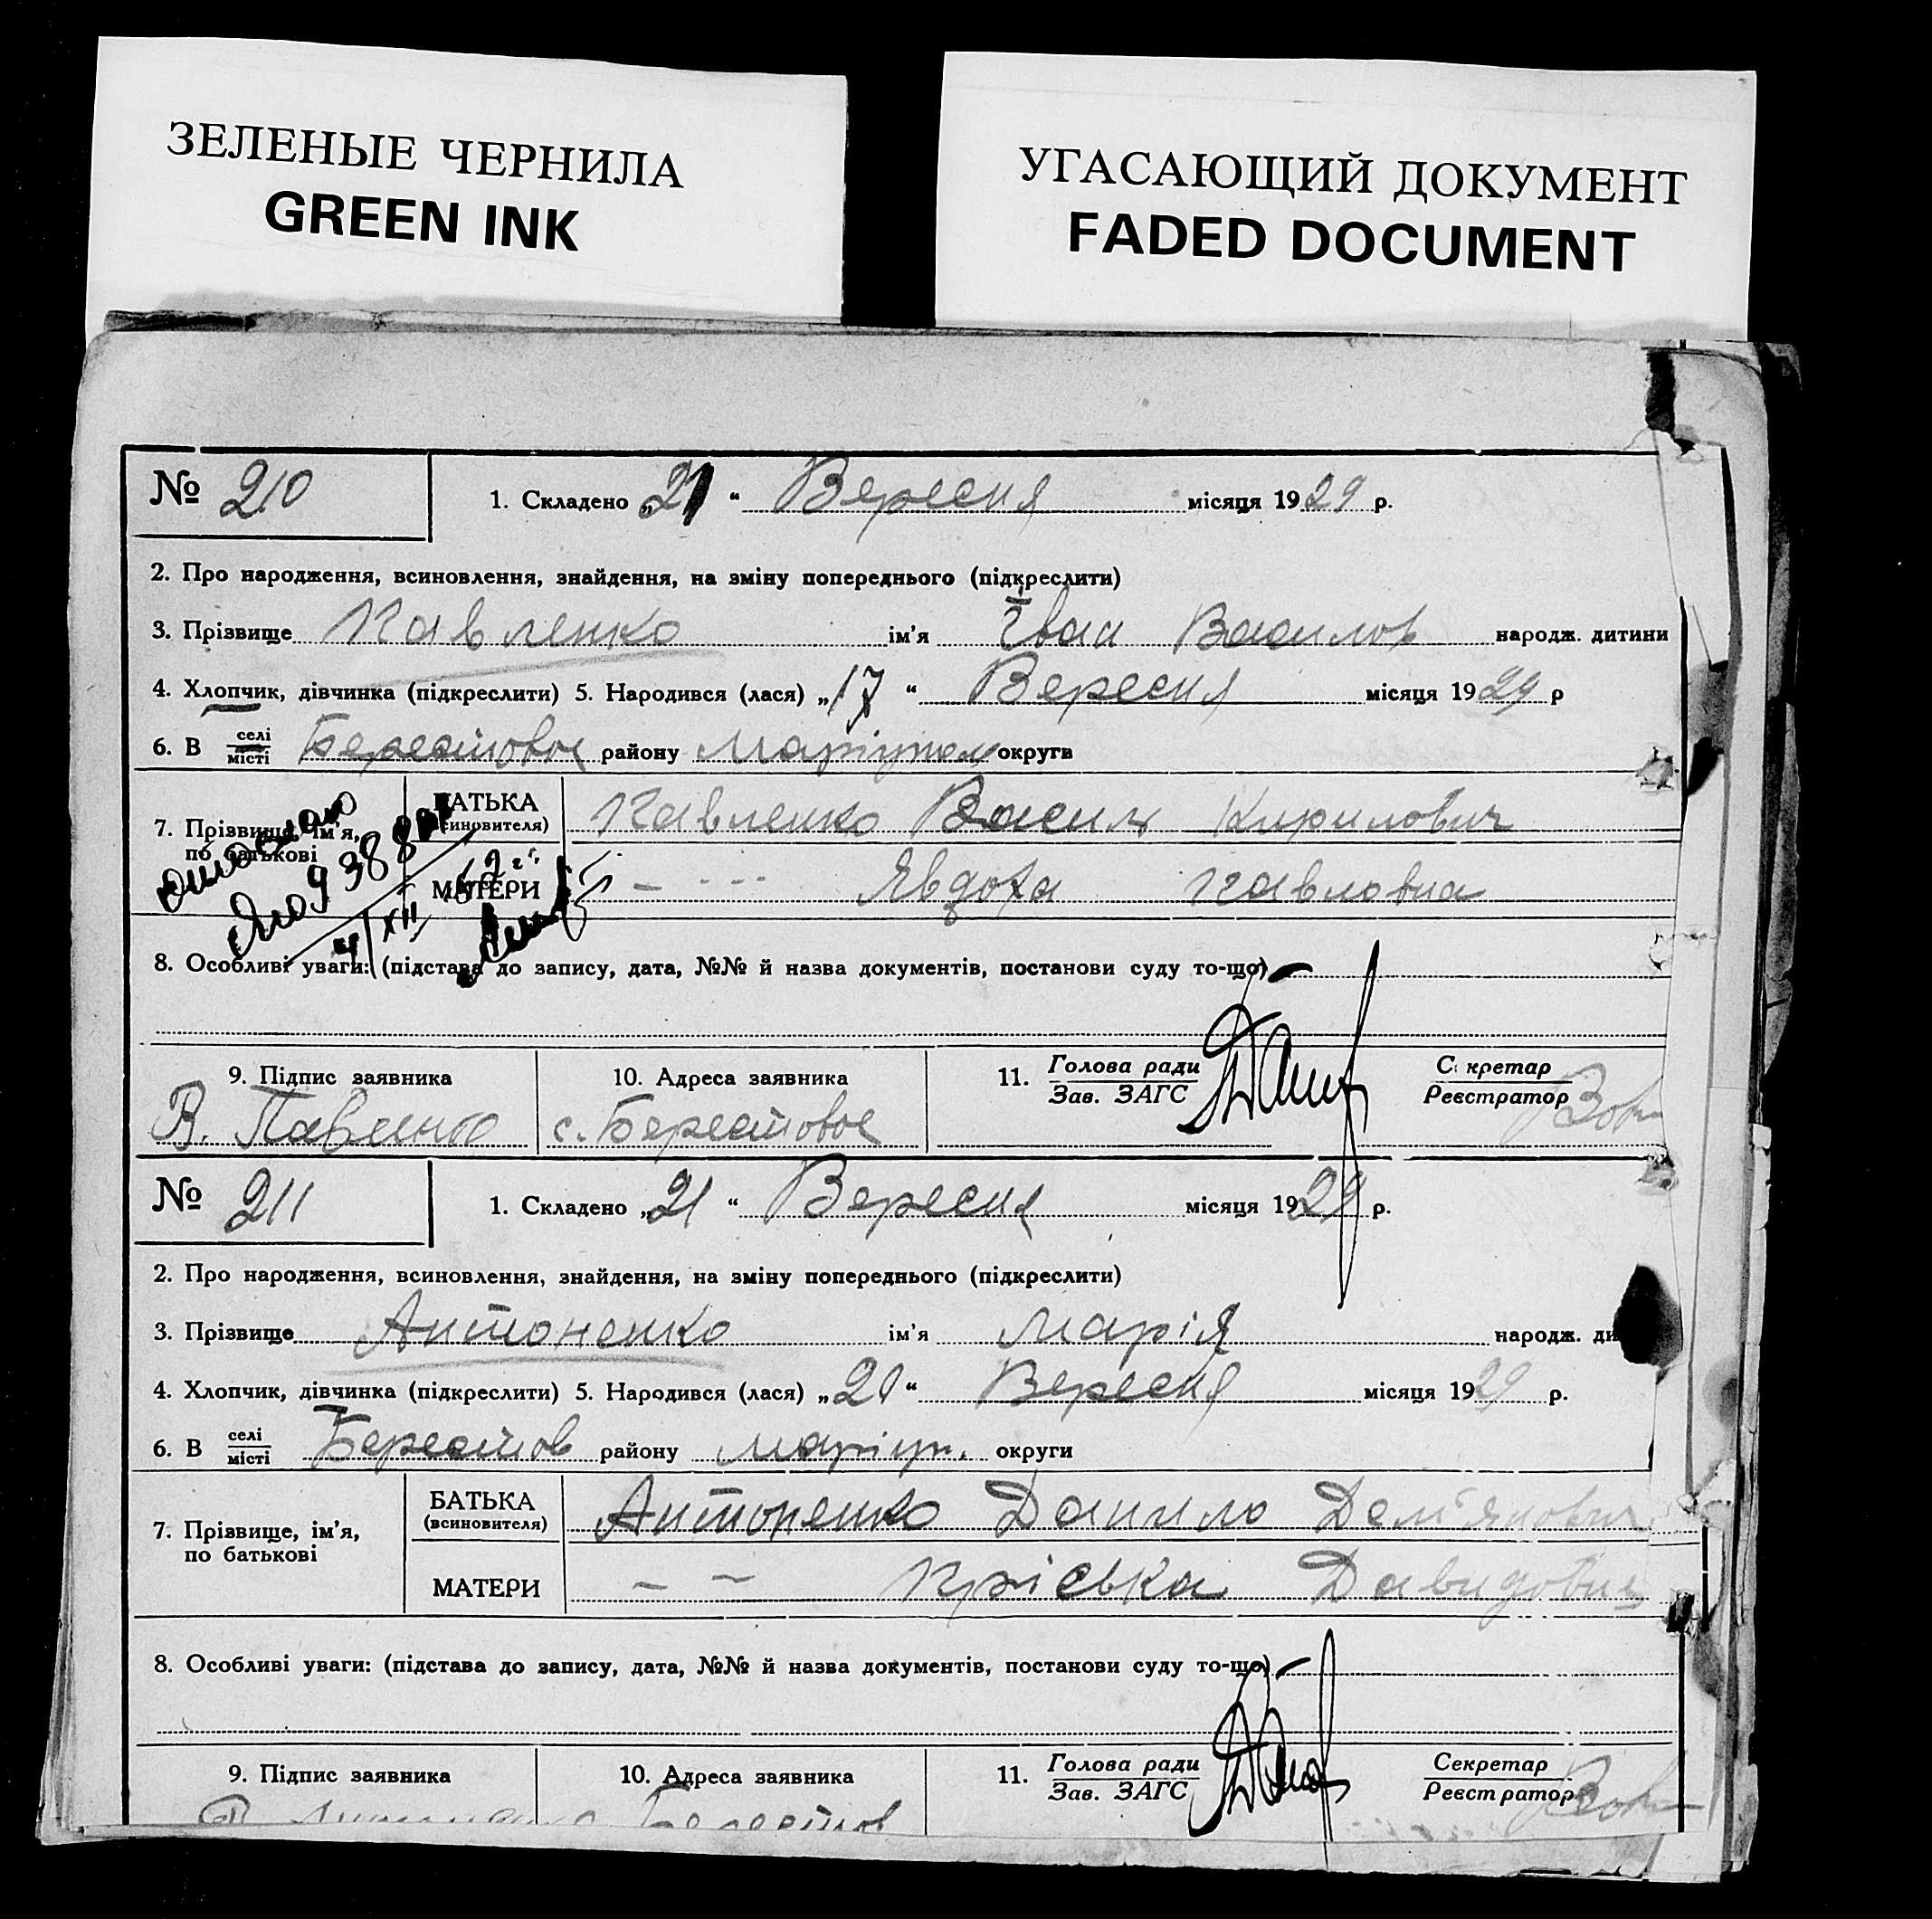 ЗЕЛЕНЫЕ ЧЕРНИЛА
GREEN INK
УГАСАЮЩИЙ ДОКУМЕНТ
FADED DOCUMENT
№ 210 1. Складено „21“ Вересня місяця 1929 р.
2. Про народження, всиновлення, знайдення, на зміну попереднього (підкреслити)
3. Прізвище Павленко ім'я Іван Василов народж. дитини
4. Хлопчик, дівчинка (підкреслити) 5. Народився (лася) „17“ Вересня місяця 1929 р
6. В селі місті Берестовое району Маріупол округи
7. Прізвище, ім'я, по батькові
БАТЬКА (всиновителя) Павленко Василь Кирилович
МАТЕРИ — Явдоха Павловна
8. Особливі уваги: (підстава до запису, дата, №№ й назва документів, постанови суду то-що) —
9. Підпис заявника 10. Адреса заявника 11. Голова ради Зав. ЗАГС Секретар Реєстратор
В. Павленко с. Берестовое
№ 211 1. Складено „21“ Вересня місяця 1929 р.
2. Про народження, всиновлення, знайдення, на зміну попереднього (підкреслити)
3. Прізвище Антоненко ім'я Марія народж. ди
4. Хлопчик, дівчинка (підкреслити) 5. Народився (лася) „20“ Вересня місяця 1929 р.
6. В селі місті Берестов району Маріуп. округи
7. Прізвище, ім'я, по батькові
БАТЬКА (всиновителя) Антоненко Данило Дем'янович
МАТЕРИ — — Пріська Давидовна
8. Особливі уваги: (підстава до запису, дата, №№ й назва документів, постанови суду то-що) —
9. Підпис заявника 10. Адреса заявника 11. Голова ради Зав. ЗАГС Секретар Реєстратор
Берестов